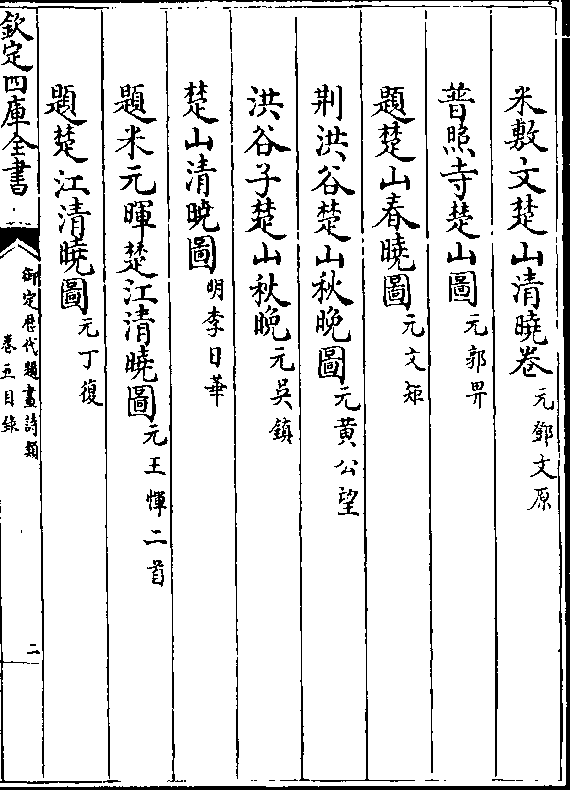 米敷文楚山清曉卷元鄧文原
普照寺楚山圖元郭畀
題楚山春曉圖元文矩
荆洪谷楚山秋晚圖元黄公望
洪谷子楚山秋晚元吳鎮
楚山清曉圖明李日華
題米元暉楚江清曉圖元王惲二首
題楚江清曉圖元丁復
欽定四庫全書
御定歷代題畫詩類
卷五目錄
二